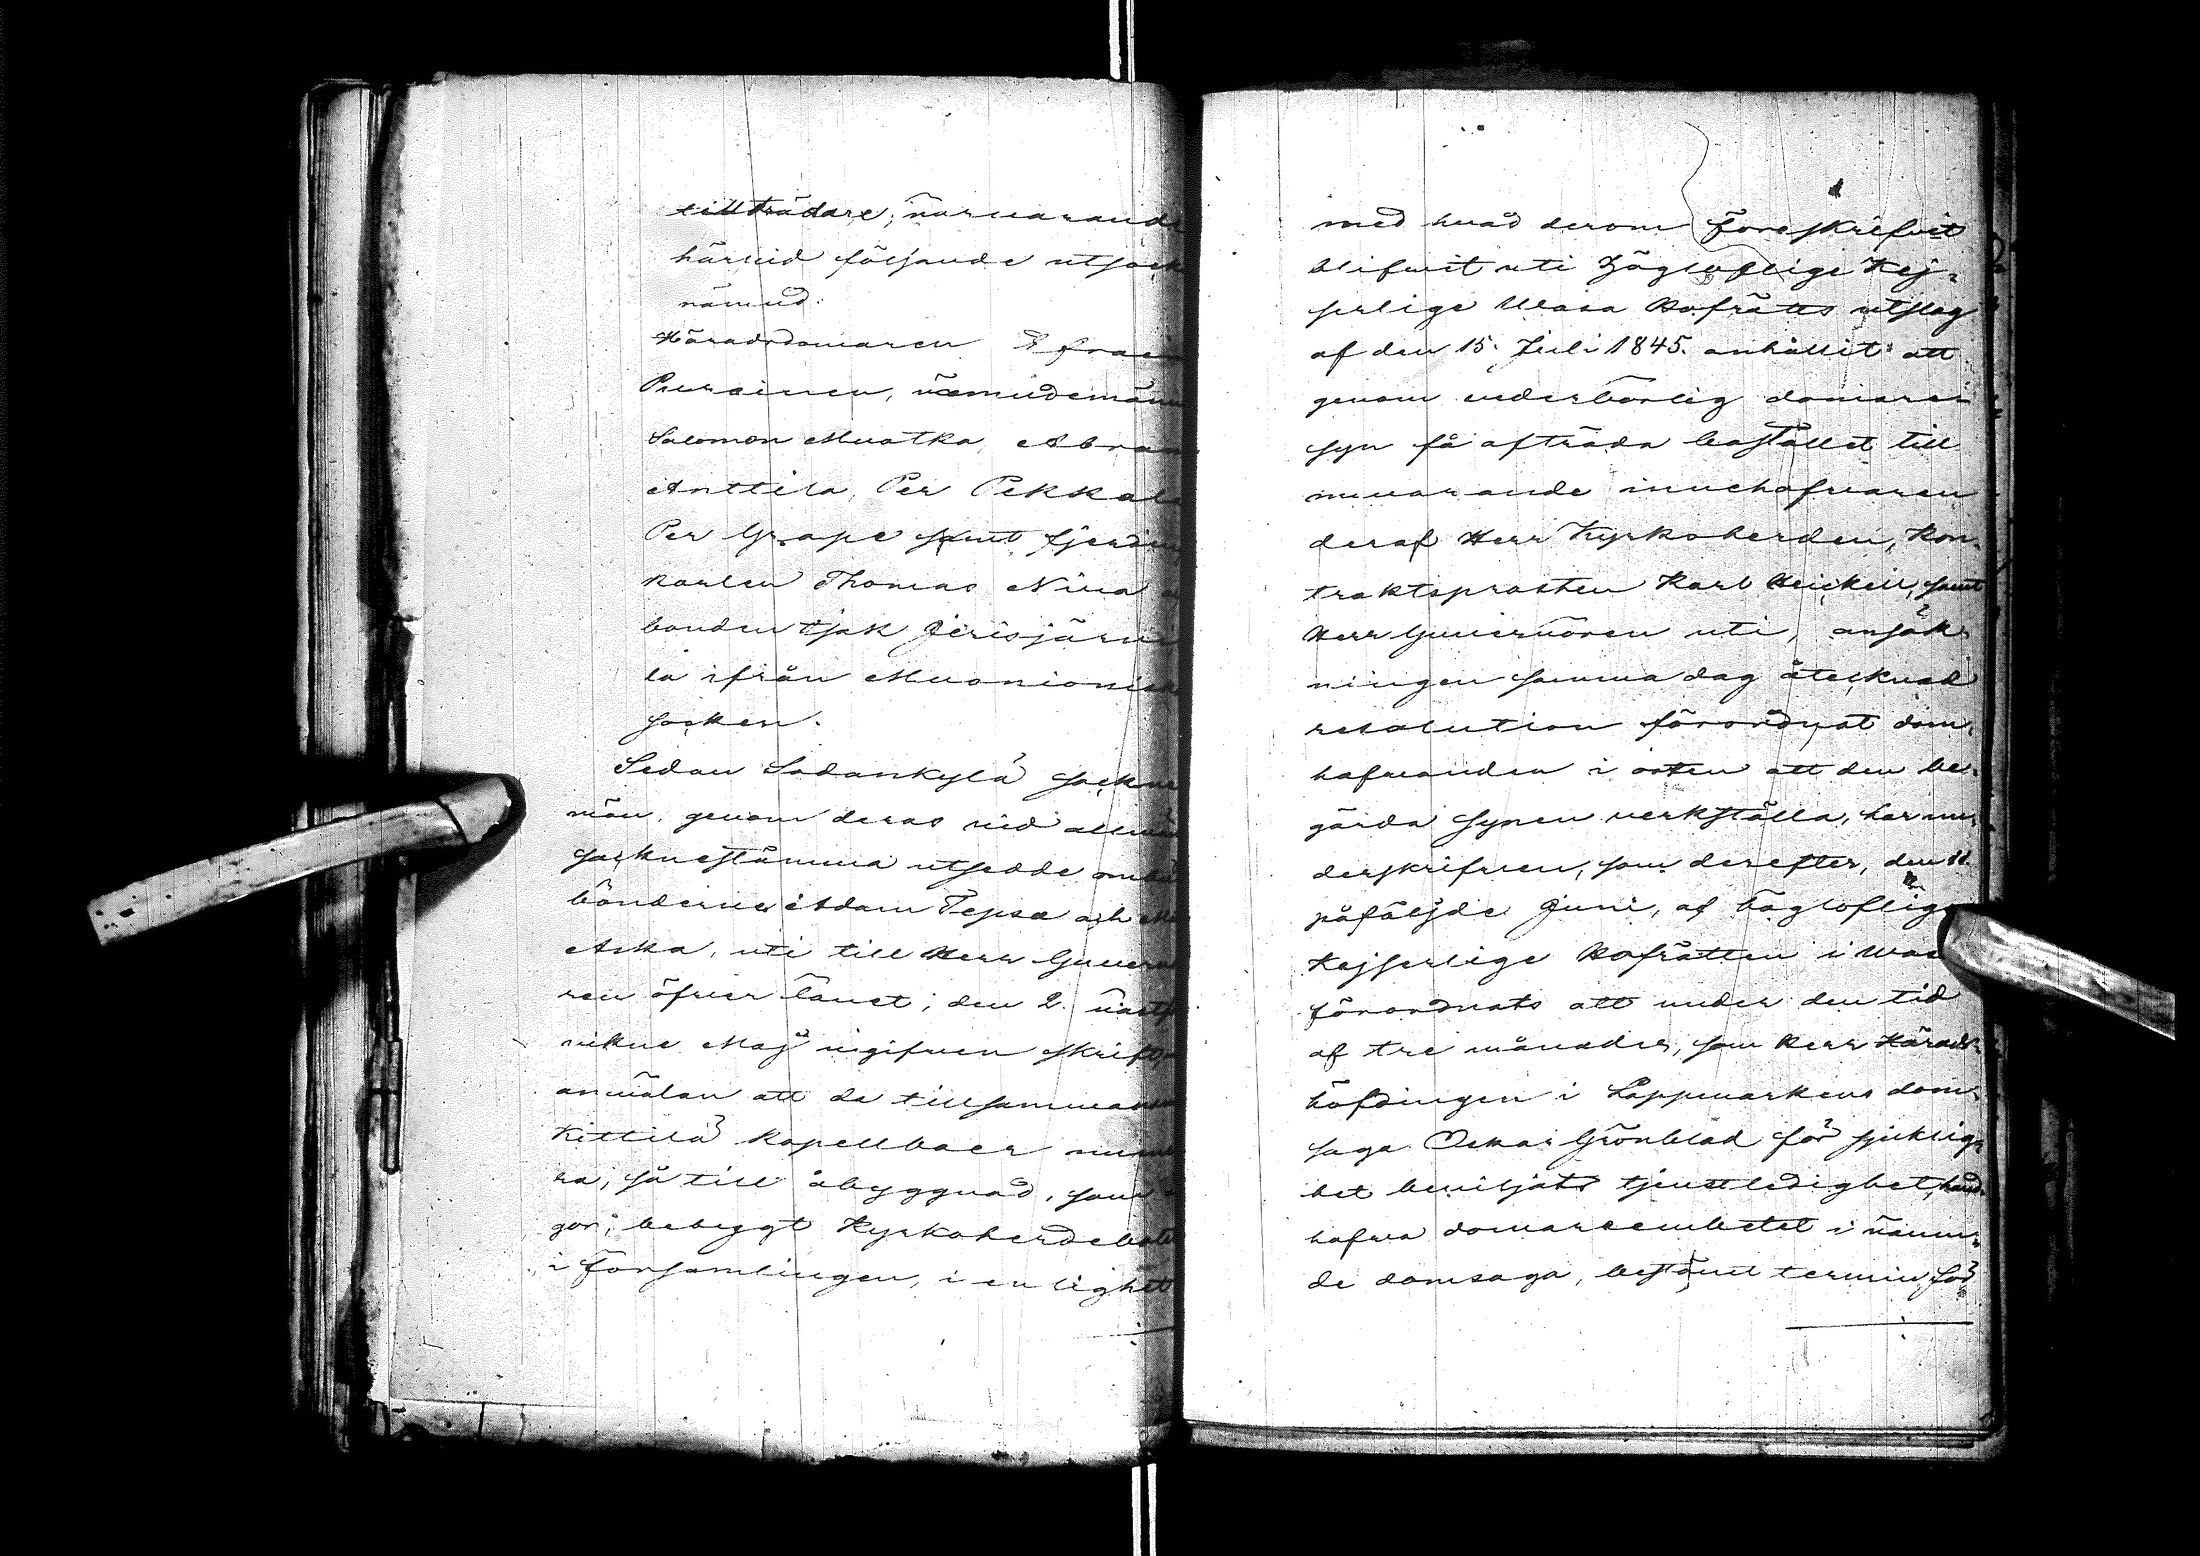 tillträdare; närvarande
härvid följande utsock
nämnd:
Häradsdomaren Efrai
Puurainen, nämndemän
Salomon Muotka, Abra
Anttila, Per Pekkal
Per Grape samt fjerdin
karlen Thomas Niva
bonden Isak Jerisjärvi
la ifrån Muonionis
socken.
Sedan Sodankylä sockne
män, genom deras vid allmä
socknestämma utsedde omb
bönderne Adam Tepsa och
Aska, uti till Herr Guver
ren öfver länet, den 2. näst
vikne Maj ingifven skrift
anmälan att de tillsamman
Kittilä kapellboer num
ra, så till åbyggnad, som
gor, bebygt Kyrkoherdebol
i församlingen, i enlighet
med hvad derom föreskrifvit
blifvit uti Högloflige Kej-
serlige Wasa Hofrätts utslag
af den 15. Juli 1845. anhållit att
genom vederbörlig domare
syn få afträda bostället till
nuvarande innehafvaren
deraf Herr Kyrkoherden, Kon-
traktsprosten Karl Heickell, samt
Herr Guvernören uti, ansök-
ningen samma dag åtecknad
resolution förordnat dom-
hafvanden i orten att den be-
gärda synen verkställa, har un-
derskrifven, som derefter, den 11.
påföljde Juni, af högloflige
Kejserlige Hofrätten i Wasa
förordnats att under den tid
af tre månader, som Herr Härads-
höfdingen i Lappmarkens dom-
saga Oskar Grönblad för sjuklig-
het beviljats tjenstledighet, hand-
hafva domareembetet i nämn-
de domsaga, bestämt termin för